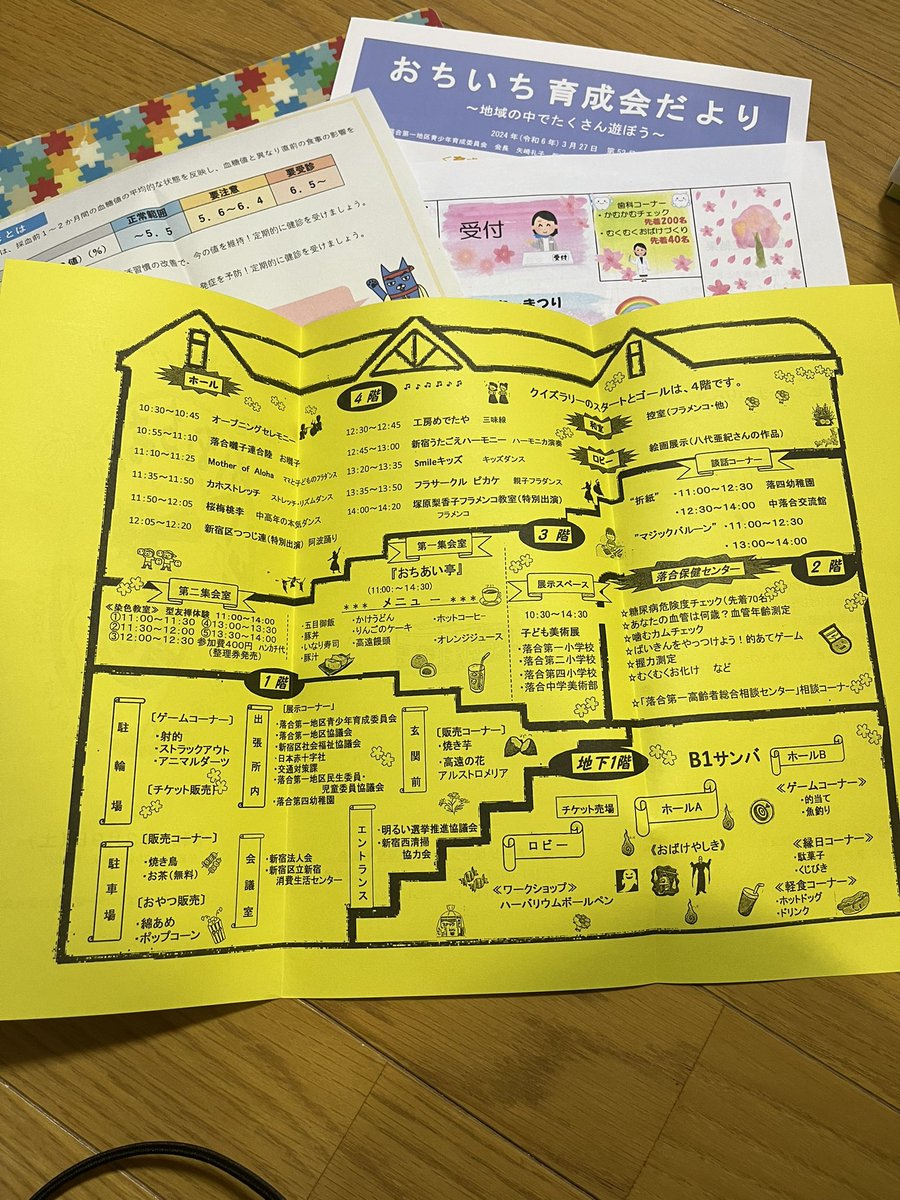 おちいち育成会だより
～地域の中でたくさん遊ぼう～
2024年(令和6年)3月27日
落合第一地区青少年育成委員会 会長 矢崎礼子
とは
は、採血前1～2か月間の血糖値の平均的な状態を反映し、血糖値と異なり直前の食事の影響を
正常範囲
要注意
要受診
値)(%)
～5.5
5.6～6.4
6.5～
習慣の改善で、今の値を維持！定期的に健診を受けましょう。
発症を予防！定期的に健診を受けましょう。
受付
受付
歯科コーナー
・かむかむチェック
先着200名
・むくむくおばけづくり
先着40名
まつり
4階
クイズラリーのスタートとゴールは、4階です。
ホール
10:30～10:45 オープニングセレモニー
10:55～11:10 落合囃子連合陸 お囃子
11:10～11:25 Mother of Aloha ママと子どものフラダンス
11:35～11:50 カホストレッチ ストレッチ・リズムダンス
11:50～12:05 桜梅桃李 中高年の本気ダンス
12:05～12:20 新宿区つつじ連(特別出演) 阿波踊り
12:30～12:45 工房めでたや 三味線
12:45～13:00 新宿うたごえハーモニー ハーモニカ演奏
13:20～13:35 Smileキッズ キッズダンス
13:35～13:50 フラサークル ピカケ 親子フラダンス
14:00～14:20 塚原梨香子フラメンコ教室(特別出演)
フラメンコ
和室
控室(フラメンコ・他)
ロビー
絵画展示(八代亜紀さんの作品)
談話コーナー
"折紙" ・11:00～12:30 落四幼稚園
・12:30～14:00 中落合交流館
"マジックバルーン" ・11:00～12:30
・13:00～14:00
3階
第二集会室
≪染色教室≫ 型友禅体験 11:00～14:00
①11:00～11:30 ④13:00～13:30
②11:30～12:00 ⑤13:30～14:00
③12:00～12:30 参加費400円 ハンカチ代
(整理券発売)
第一集会室
『おちあい亭』
(11:00～14:30)
*** メニュー ***
・五目御飯
・豚丼
・いなり寿司
・豚汁
・かけうどん
・りんごのケーキ
・高遠饅頭
・ホットコーヒー
・オレンジジュース
展示スペース
10:30～14:30
子ども美術展
・落合第一小学校
・落合第二小学校
・落合第四小学校
・落合中学美術部
2階
落合保健センター
☆糖尿病危険度チェック(先着70名)
☆あなたの血管は何歳？血管年齢測定
☆噛むカムチェック
☆ばいきんをやっつけよう！的あてゲーム
☆握力測定
☆むくむくお化け など
☆「落合第一高齢者総合相談センター」相談コーナー
1階
駐輪場
[ゲームコーナー]
・射的
・ストラックアウト
・アニマルダーツ
[チケット販売]
駐車場
[販売コーナー]
・焼き鳥
・お茶(無料)
[おやつ販売]
・綿あめ
・ポップコーン
出張所内
[展示コーナー]
・落合第一地区青少年育成委員会
・落合第一地区協議会
・新宿区社会福祉協議会
・日本赤十字社
・交通対策課
・落合第一地区民生委員・
児童委員協議会
・落合第四幼稚園
会議室
・新宿法人会
・新宿区立新宿
消費生活センター
玄関前
[販売コーナー]
・焼き芋
・高遠の花
アルストロメリア
エントランス
・明るい選挙推進協議会
・新宿西清掃
協力会
地下1階
B1サンバ
チケット売場
ロビー
≪ワークショップ≫
ハーバリウムボールペン
ホールA
≪おばけやしき≫
ホールB
≪ゲームコーナー≫
・的当て
・魚釣り
≪縁日コーナー≫
・駄菓子
・くじびき
≪軽食コーナー≫
・ホットドッグ
・ドリンク